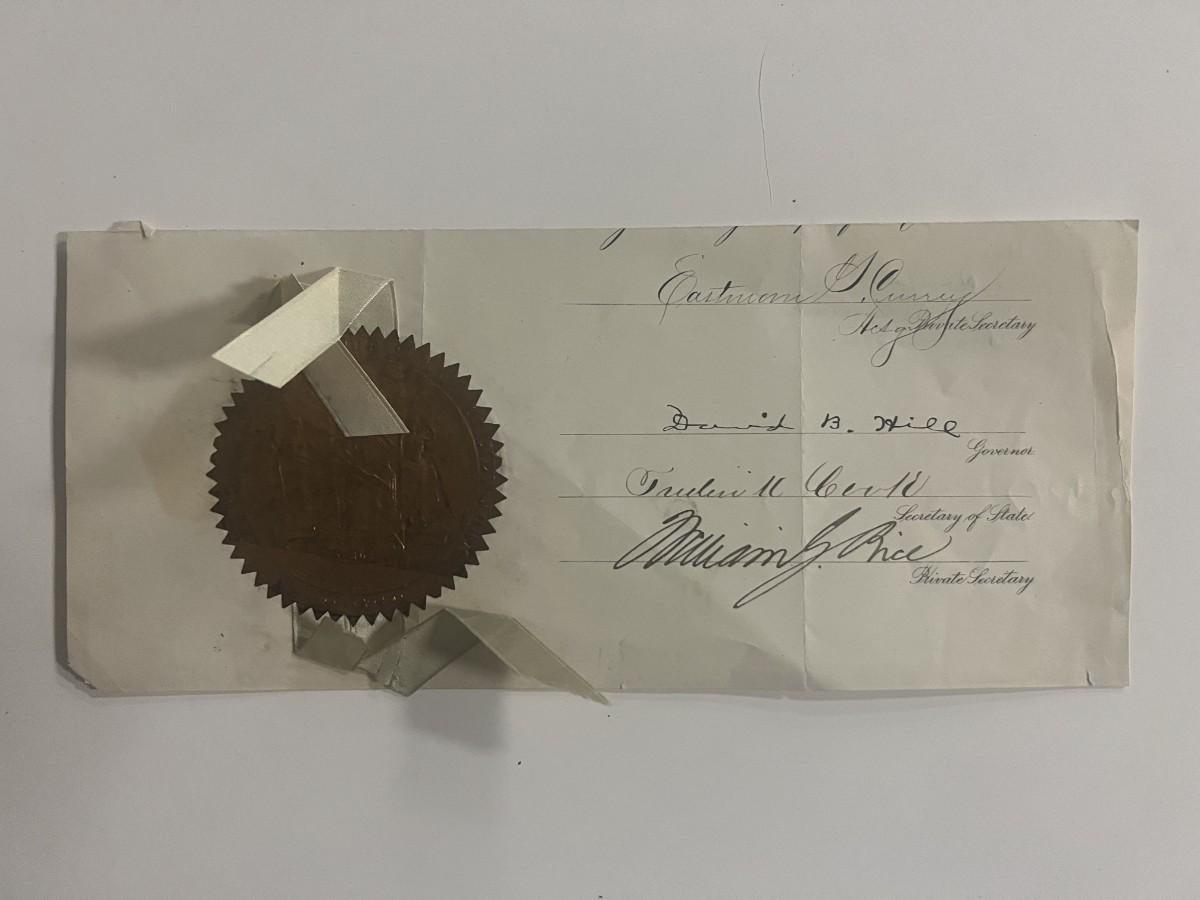 Eastman G. Currey
Act'g Private Secretary
David B. Hill
Governor
Frederick Cook
Secretary of State
William G. Rice
Private Secretary